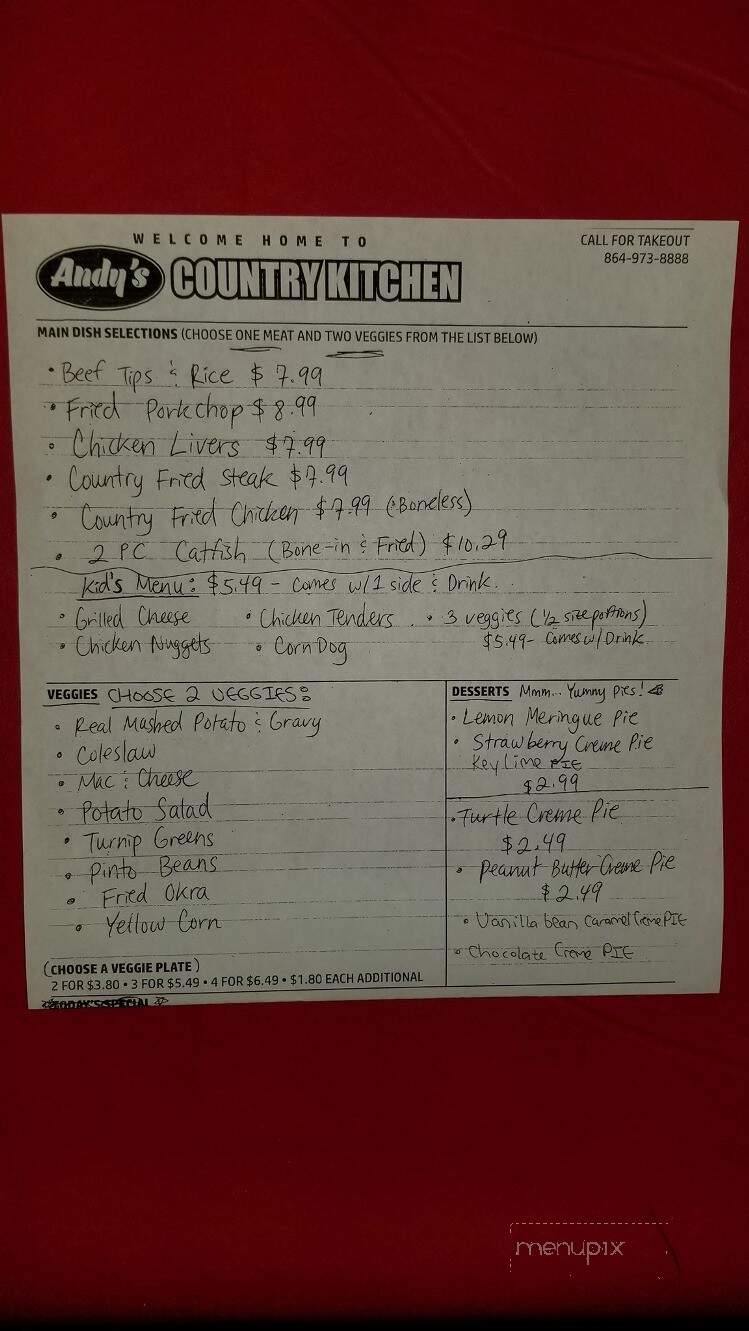 WELCOME HOME TO
Andy's COUNTRY KITCHEN
CALL FOR TAKEOUT
864-973-8888
MAIN DISH SELECTIONS (CHOOSE ONE MEAT AND TWO VEGGIES FROM THE LIST BELOW)
• Beef Tips & Rice $7.99
• Fried Porkchop $8.99
• Chicken Livers $7.99
• Country Fried Steak $7.99
• Country Fried Chicken $7.99 (Boneless)
• 2 PC Catfish (Bone-in & Fried) $10.29
Kid's Menu: $5.49 - Comes w/1 side & Drink.
• Grilled Cheese • Chicken Tenders • 3 veggies (1/2 size portions)
• Chicken Nuggets • Corn Dog $5.49- Comes w/ Drink
VEGGIES CHOOSE 2 VEGGIES:
• Real Mashed Potato & Gravy
• Coleslaw
• Mac & Cheese
• Potato Salad
• Turnip Greens
• Pinto Beans
• Fried Okra
• Yellow Corn
(CHOOSE A VEGGIE PLATE)
2 FOR $3.80 • 3 FOR $5.49 • 4 FOR $6.49 • $1.80 EACH ADDITIONAL
TODAY'S SPECIAL
DESSERTS Mmm... Yummy Pies!
• Lemon Meringue Pie
• Strawberry Creme Pie
Key Lime PIE
$2.99
• Turtle Creme Pie
$2.49
• Peanut Butter Creme Pie
$2.49
• Vanilla bean Caramel Creme PIE
• Chocolate Creme PIE
menupix